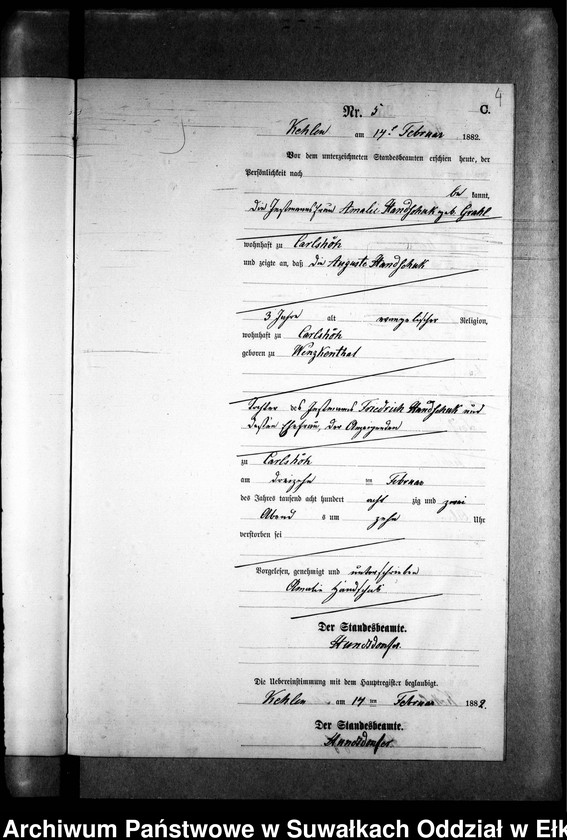 4
Nr. 5 C.
Kehlen am 14ᵗ Februar 1882.
Vor dem unterzeichneten Standesbeamten erschien heute, der
Persönlichkeit nach
be kannt,
die Instmannsfrau Amalie Handschuk geb. Grahl
wohnhaft zu Carlshöh
und zeigte an, daß die Auguste Handschuk
3 Jahre alt evangelischer Religion,
wohnhaft zu Carlshöh
geboren zu
Tochter des Instmanns Friedrich Handschuk und
dessen Ehefrau, der Anzeigenden
zu Carlshöh
am dreizehn ten Februar
des Jahres tausend acht hundert acht zig und zwei
Abend s um zehn Uhr
verstorben sei
Vorgelesen, genehmigt und unterschrieben
Amalie Handschuk
Der Standesbeamte.
Hundsdörfer.
Die Uebereinstimmung mit dem Hauptregister beglaubigt.
Kehlen am 14 ten Februar 1882.
Der Standesbeamte.
Hundsdörfer.
Archiwum Państwowe w Suwałkach Oddział w Ełk